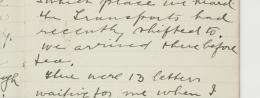 which place we heard
the Transports had
recently shifted to.
we arrived there before
tea.
There were 13 letters
waiting for me when I